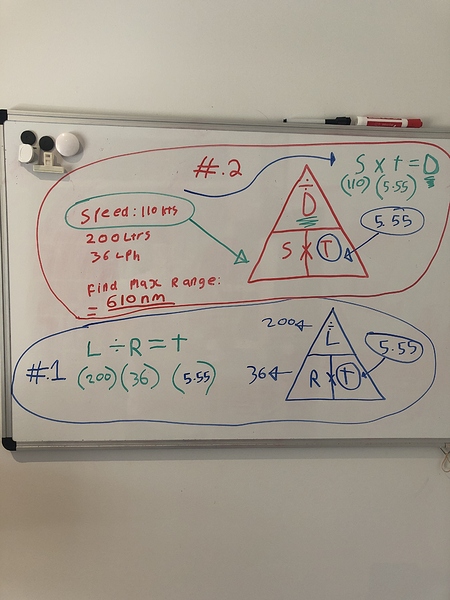 #.2
S x t = D
(110) (5.55)
÷
D
S x T
5.55
Speed: 110 kts
200 Ltrs
36 Lph
Find Max Range:
= 610nm
#.1
L ÷ R = t
(200) (36) (5.55)
200
÷
L
36
R x t
5.55